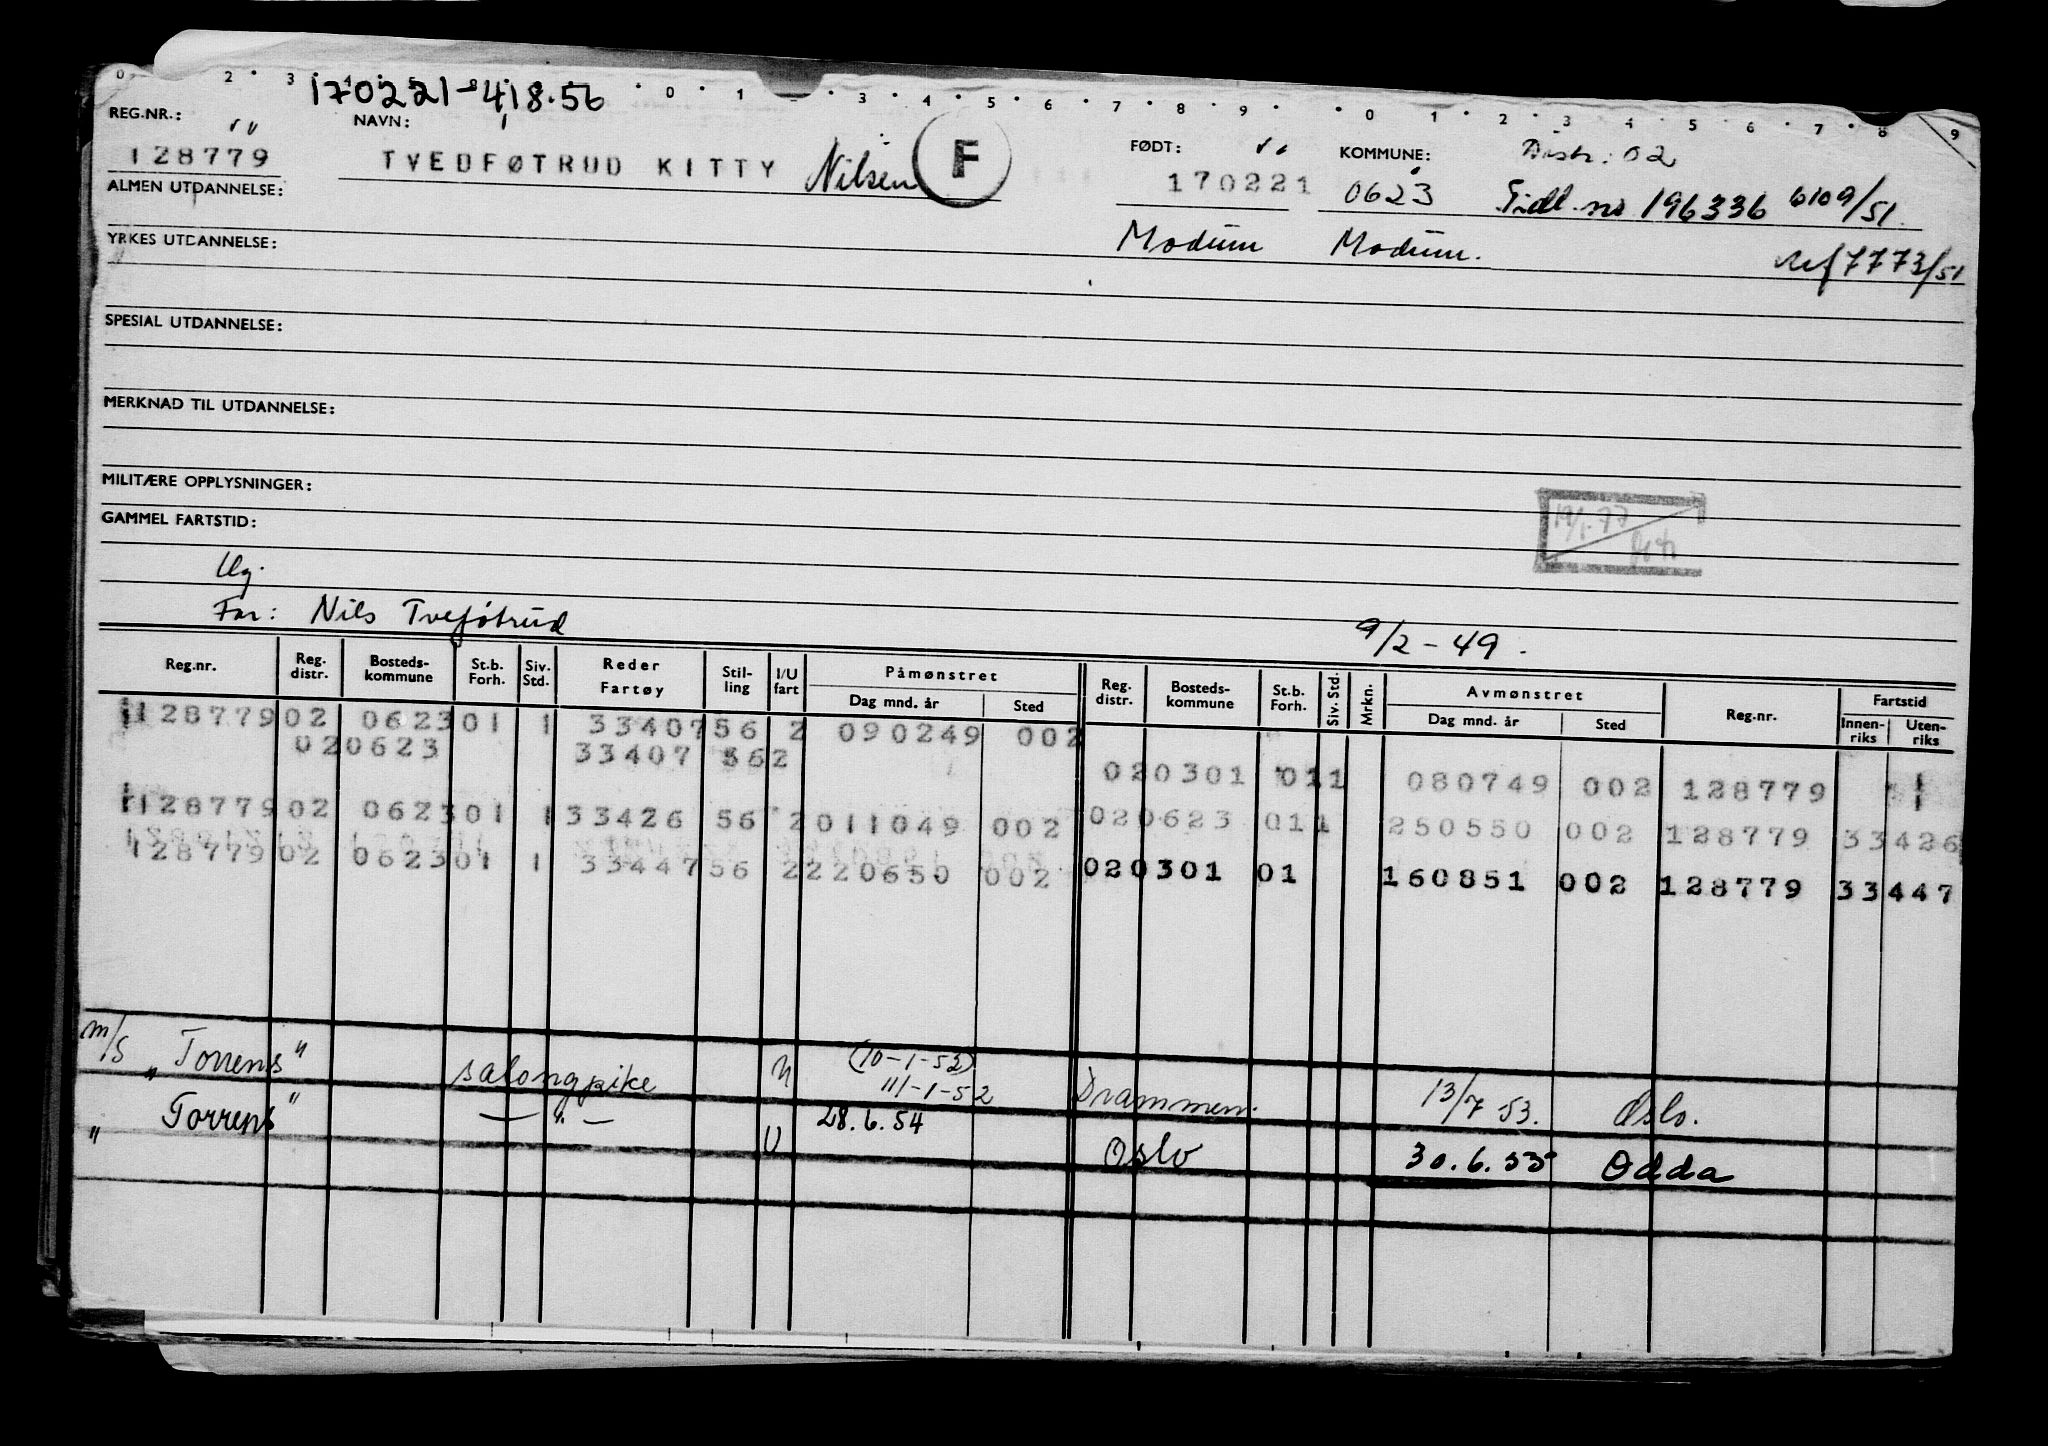 0 2 3 0 1 2 3 4 5 6 7 8 9 0 1 2 3 4 5 6 7 8 9
170221-418.56
REG.NR.: NAVN: FØDT: KOMMUNE: Distr: 02
128779 TVEDFØTRUD KITTY Nilsen F 170221 0623 Tidl. nr 196336 6109/51.
ALMEN UTDANNELSE:
YRKES UTDANNELSE: Modum Modum. Ref 7773/51
SPESIAL UTDANNELSE:
MERKNAD TIL UTDANNELSE:
MILITÆRE OPPLYSNINGER:
GAMMEL FARTSTID: 19/1-77
Ug.
Far: Nils Tveføtrud 9/2-49.
Reg.nr. Reg. distr. Bosteds-kommune St.b. Forh. Siv. Std. Reder Fartøy Stil-ling I/U fart Påmønstret Dag mnd. år Sted Reg. distr. Bosteds-kommune St.b. Forh. Siv. Std. Mrkn. Avmønstret Dag mnd. år Sted Reg.nr. Fartstid Innen-riks Uten-riks
128779 02 0623 01 1 33407 56 2 090249 002
020623 33407 562
020301 011 080749 002 128779
128779 02 0623 01 1 33426 56 2 011049 002 020623 011 250550 002 128779 33426
128779 02 0623 01 1 33447 56 2 220650 002 020301 01 160851 002 128779 33447
m/s "Torrens" salongpike U (10-1-52) 11/-1-52 Drammen. 13/7 53. Oslo.
" Torrens" — " — U 28.6.54 Oslo 30.6.55 Odda